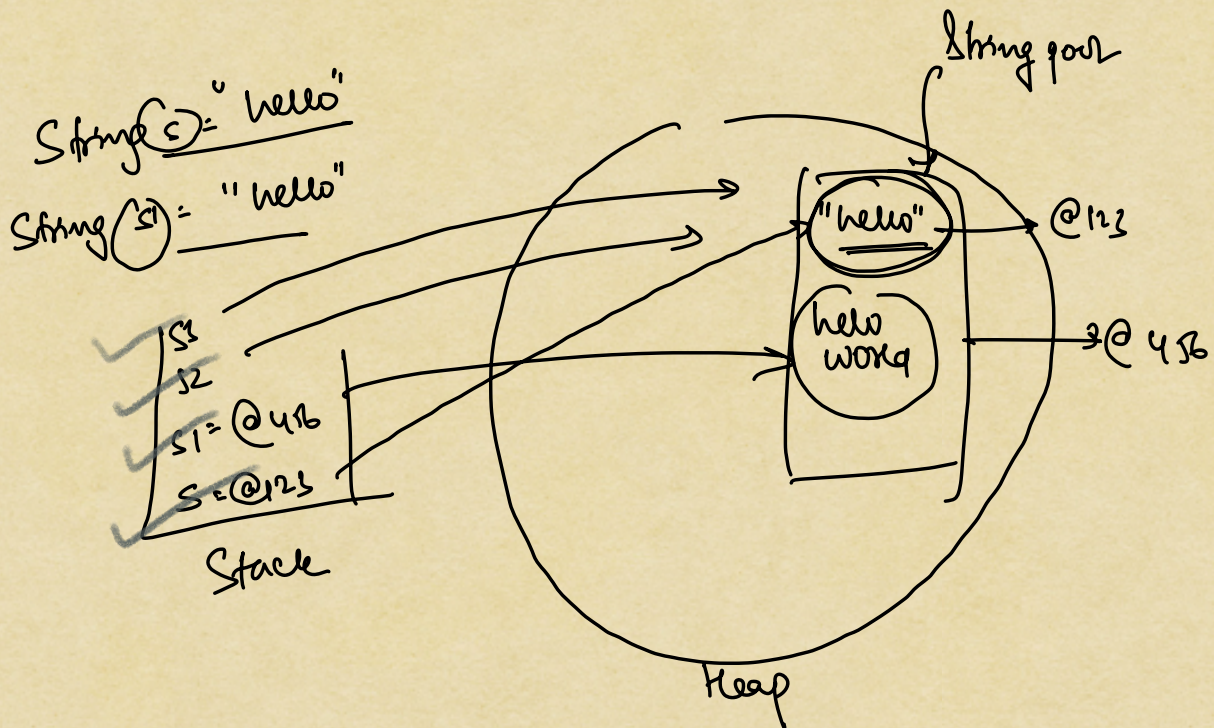 String pool
String s = "hello"
String s1 = "hello"
"hello"
@123
helo
world
@456
S3
S2
S1 = @456
S = @123
Stack
Heap